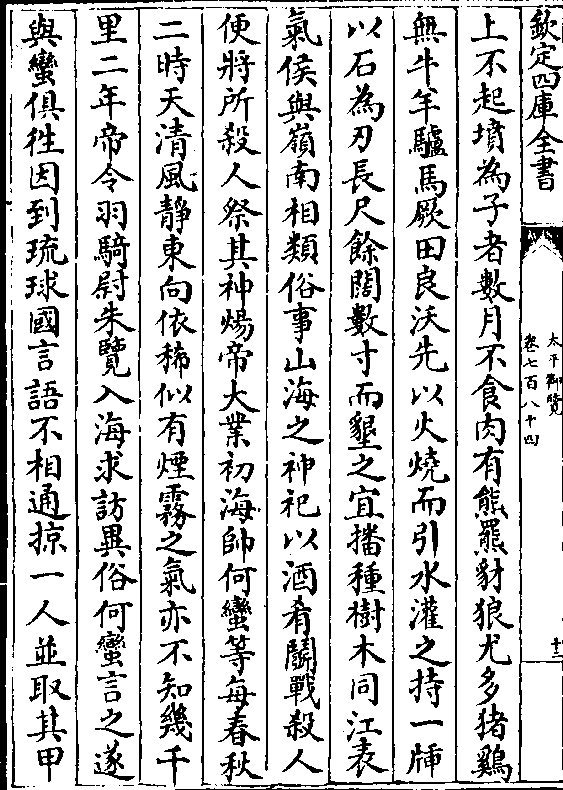 欽定四庫全書
太平御覽
卷七百八十四
十三
上不起墳為子者數月不食肉有熊羆豺狼尤多猪鷄
無牛羊驢馬厥田良沃先以火燒而引水灌之持一牐
以石為刃長尺餘闊數寸而墾之宜播種樹木同江表
氣侯與嶺南相類俗事山海之神祀以酒肴鬭戰殺人
便將所殺人祭其神煬帝大業初海帥何蠻等每春秋
二時天清風静東向依稀似有煙霧之氣亦不知幾千
里二年帝令羽騎尉朱覽入海求訪異俗何蠻言之遂
與蠻俱徃因到琉球國言語不相通掠一人並取其甲